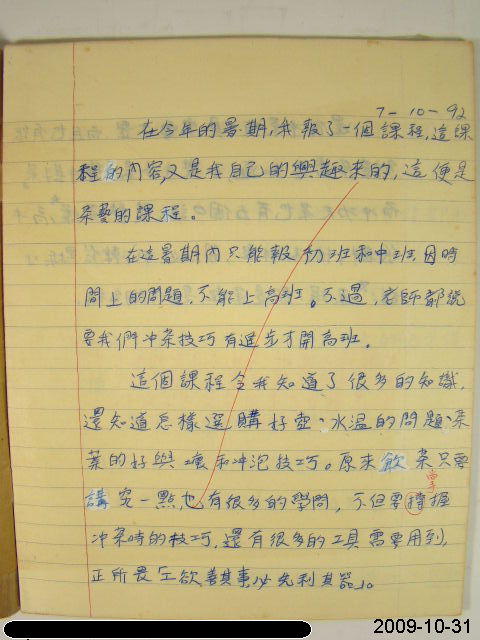 7-10-92
在今年的暑期,我報了一個課程,這課
程的內容,又是我自己的興趣來的,這便是
茶藝的課程。
在這暑期內只能報初班和中班,因時
間上的問題,不能上高班。不過,老師都說
要我們冲茶技巧有進步才開高班。
這個課程令我知道了很多的知識,
還知道怎樣選購好壺、水溫的問題、茶
葉的好與壞和冲泡技巧。原來飲茶只要
講究一點,也有很多的學問,不但要握
掌
冲茶時的技巧,還有很多的工具需要用到,
正所是「工欲善其事必先利其器」。
2009-10-31